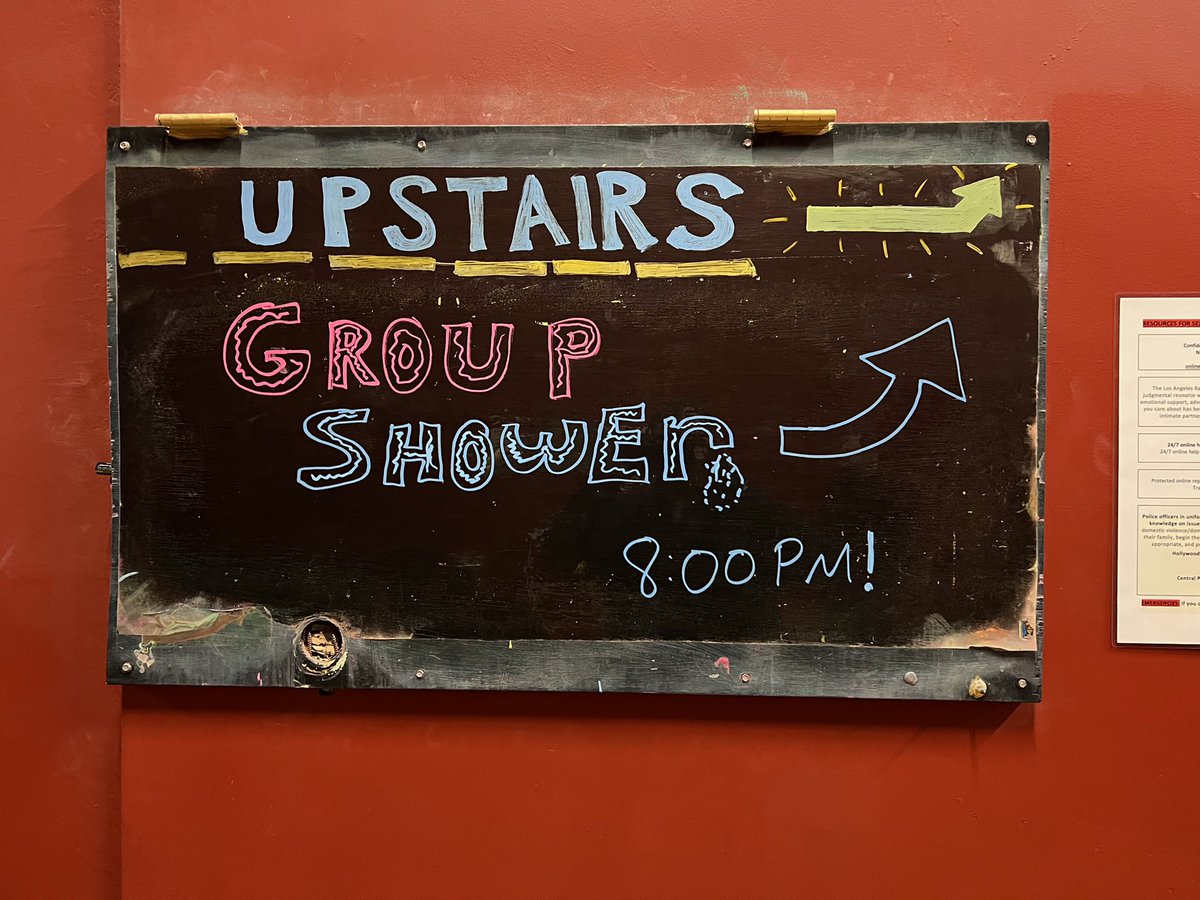 UPSTAIRS
GROUP
SHOWER
8:00 PM!
RESOURCES FOR
online
The Los Angeles
judgmental resource
emotional support,
you care about has
intimate
24/7 online
24/7 online help
Protected online
Police officers in
knowledge on
domestic
their family, begin
appropriate, and
Hollywood
Central
EMERGENCIES If you